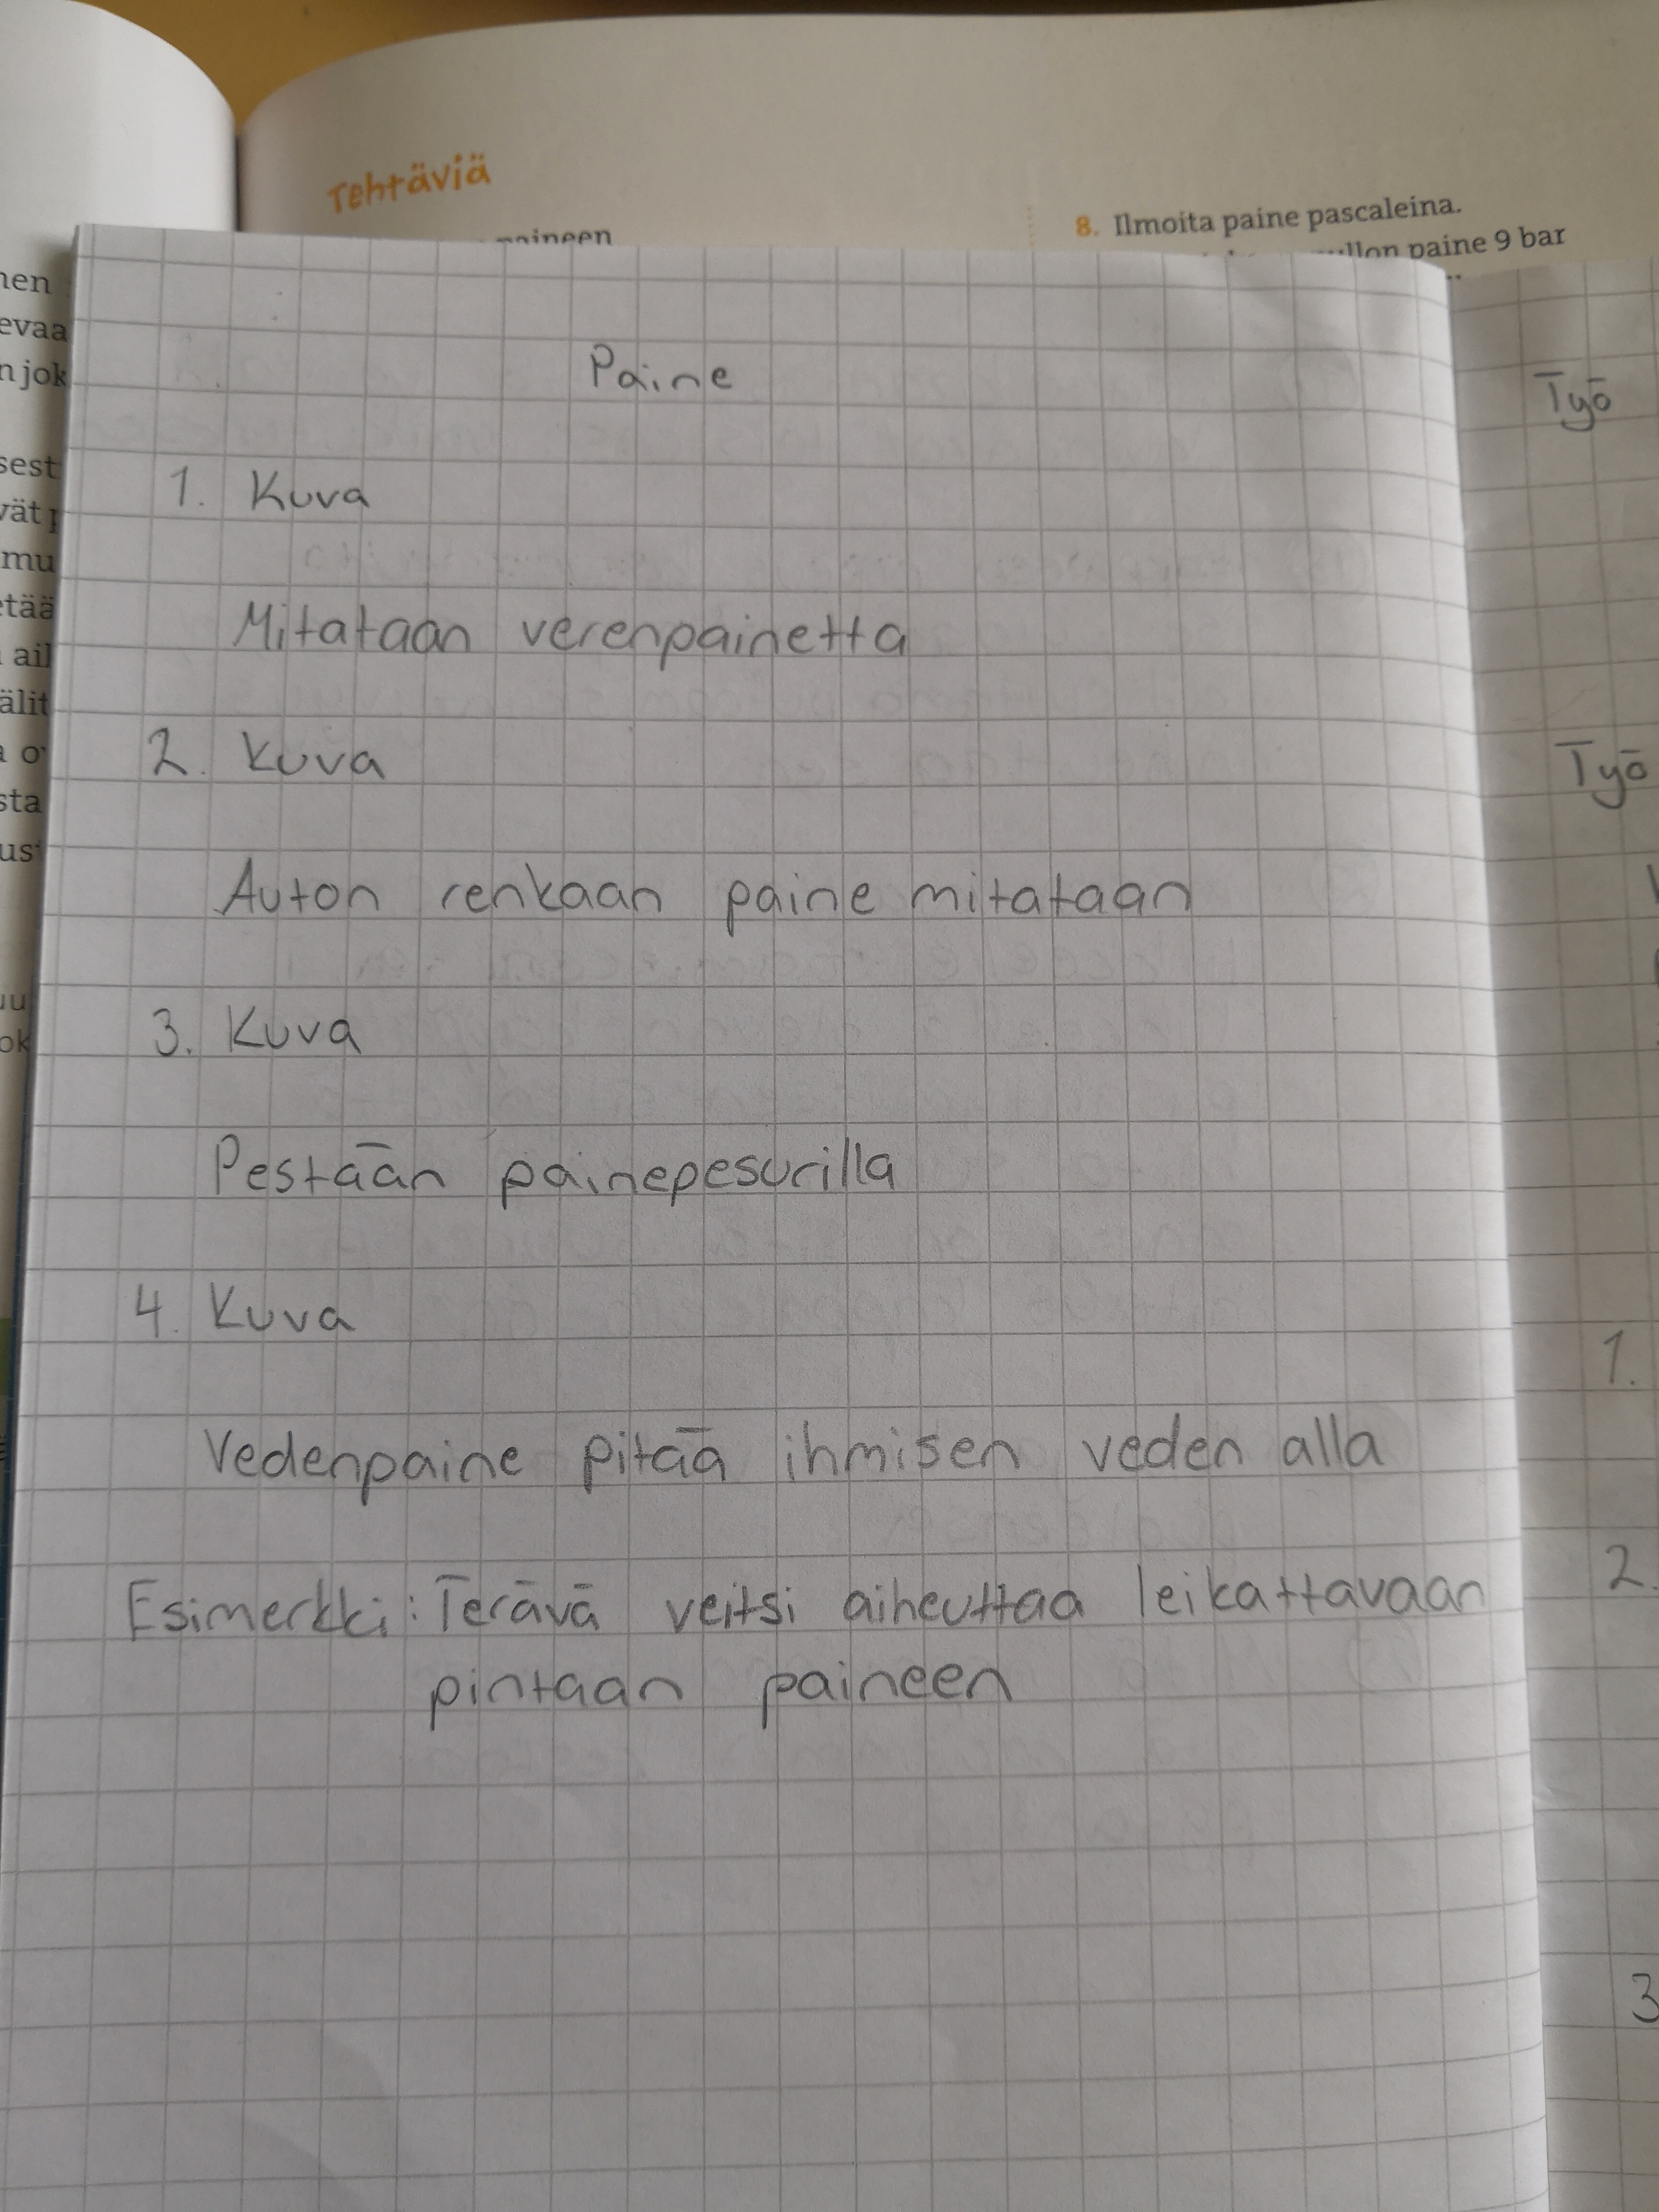 Tehtäviä
paineen
8. Ilmoita paine pascaleina.
paine 9 bar
Paine
1. Kuva
Mitataan verenpainetta
2. Kuva
Auton renkaan paine mitataan
3. Kuva
Pestään painepesurilla
4. Kuva
Vedenpaine pitää ihmisen veden alla
Esimerkki: Terävä veitsi aiheuttaa leikattavaan
pintaan paineen
Työ
Työ
1.
2.
3